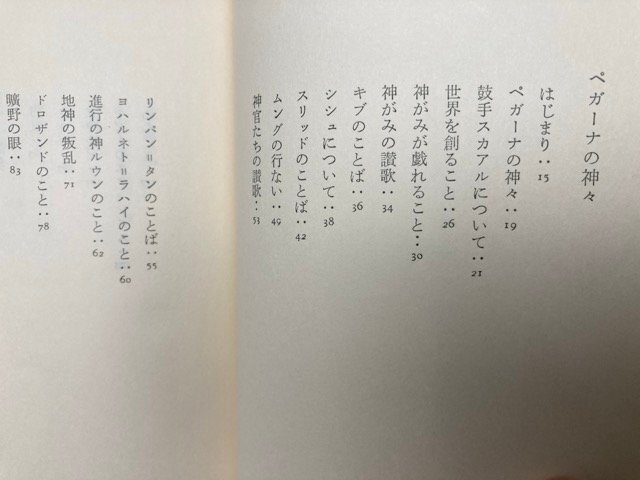 ペガーナの神々
はじまり‥15
ペガーナの神々‥19
鼓手スカアルについて‥21
世界を創ること‥26
神がみが戯れること‥30
神がみの讃歌‥34
キブのことば‥36
シシュについて‥38
スリッドのことば‥42
ムングの行ない‥49
神官たちの讃歌‥53
リンパン＝タンのことば‥55
ヨハルネト＝ラハイのこと‥60
進行の神ルウンのこと‥62
地神の叛乱‥71
ドロザンドのこと‥78
曠野の眼‥83